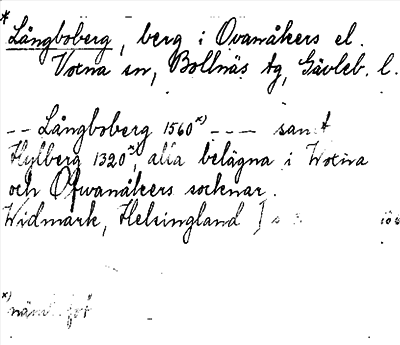 * Långboberg, berg i Ovanåkers el.
Voxna sn, Bollnäs tg, Gävleb. l.
-- Långboberg 1560 x) --- samt
Hylberg 1320 x), alla belägna i Woxna
och Ofwanåkers socknar.
Widmark, Helsingland I s
x) näml. fot